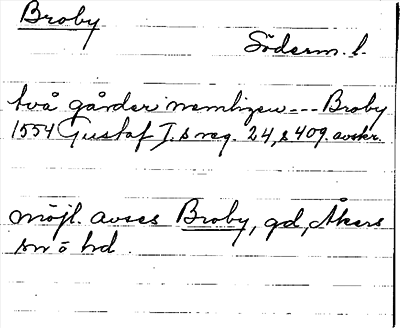 Broby
Söderm. l.
två gårder nemligen --- Broby
1554 Gustaf I.s reg. 24, s 409. avskr.
möjl. avses Broby, gd, Åkers
sn o hd.